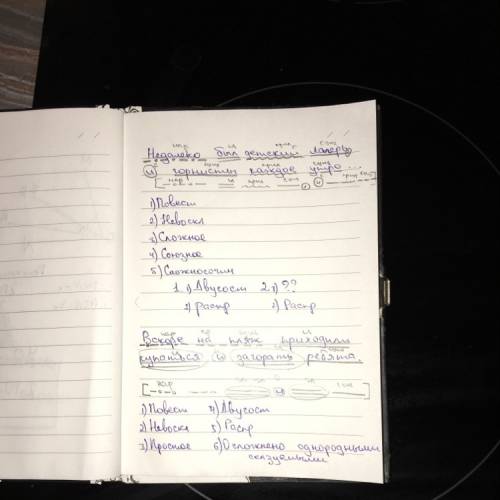 нар гл прил сущ
Недалеко был детский лагерь
и горнисты каждое утро ...
[нар гл прил сущ], и
1) Повест
2) Невоскл
3) Сложное
4) Союзное
5) Сложносочин
1 1) Двусост 2 1) ??
2) распр 2) Распр
Вскоре на пляж приходили
купаться и загорать ребята.
[нар и сущ]
1) Повест 4) Двусост
2) Невоскл 5) Распр
3) Простое 6) Осложнено однородными
сказуемыми